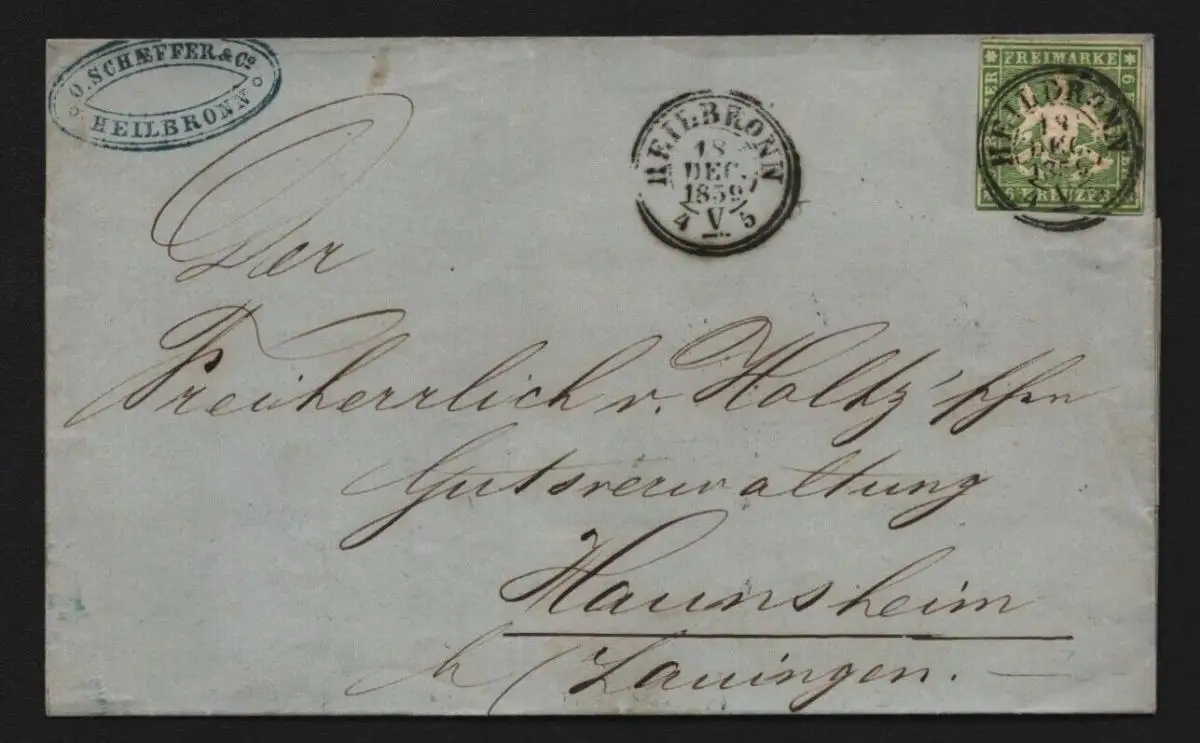 O. SCHÆFFER & Cº
HEILBRONN
HEILBRONN
18
DEC.
1859
4 V 5
FREIMARKE
6 KREUZER
HEILBRONN
18
DEC.
1859
4 V 5
Der
Freiherrlich v. Holtz'schen
Gutsverwaltung
Haunsheim
Lauingen.